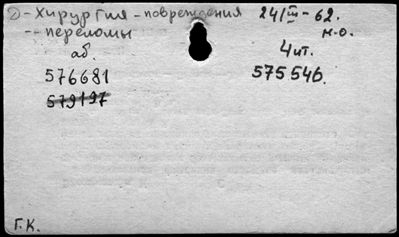 2) - Хирургия - повреждения 24/III - 62.
-- переломы н.о.
аб. 4 чт.
576681 575546.
579197
Г.К.